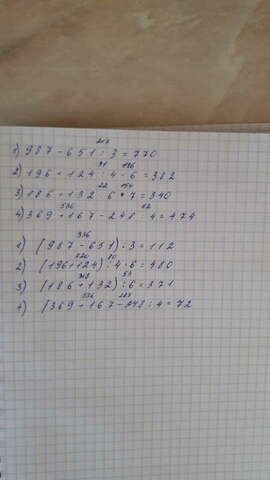 217
1) 987 - 651 : 3 = 770
31 186
2) 196 + 124 : 4 · 6 = 382
22 154
3) 186 + 132 : 6 · 7 = 340
536 62
4) 369 + 167 - 248 : 4 = 474
336
1) (987 - 651) : 3 = 112
320 80
2) (196 + 124) : 4 · 6 = 480
318 53
3) (186 + 132) : 6 = 371
536
4) (369 + 167 - 248 : 4 = 72